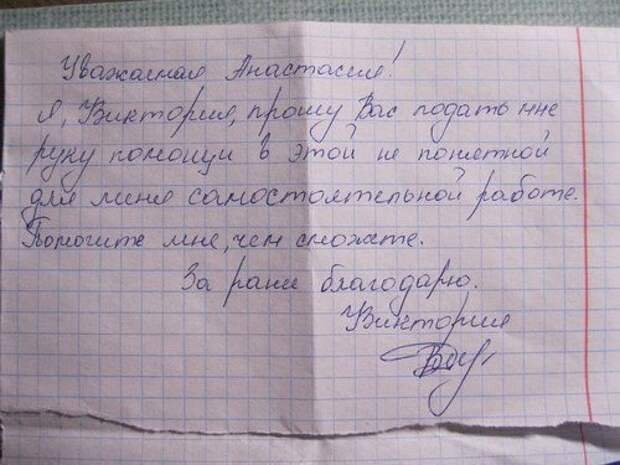 Уважаемая Анастасия!
Я, Виктория, прошу Вас подать мне
руку помощи в этой не понятной
для меня самостоятельной работе.
Помогите мне, чем сможете.
За рани благодарю.
Виктория